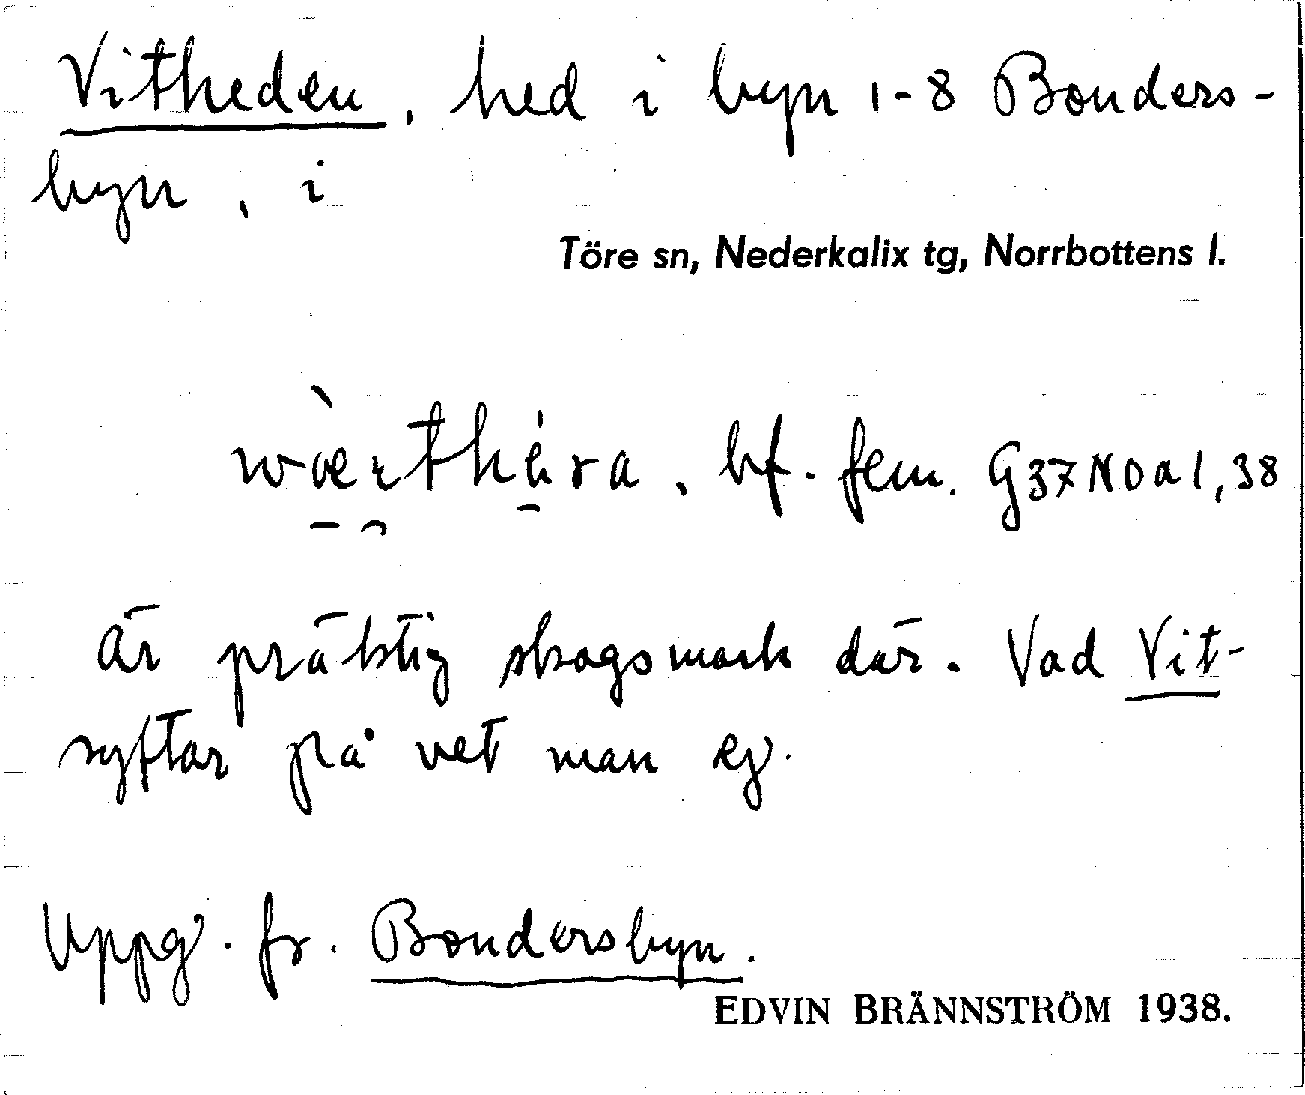 Vitheden, hed i byn 1-8 Bonders-
byn, i
Töre sn, Nederkalix tg, Norrbottens l.
bf. fem. G37NDa1,38
Är präktig skogsmark där. Vad Vit-
syftar på vet man ej.
Uppg. fr. Bondersbyn.
EDVIN BRÄNNSTRÖM 1938.